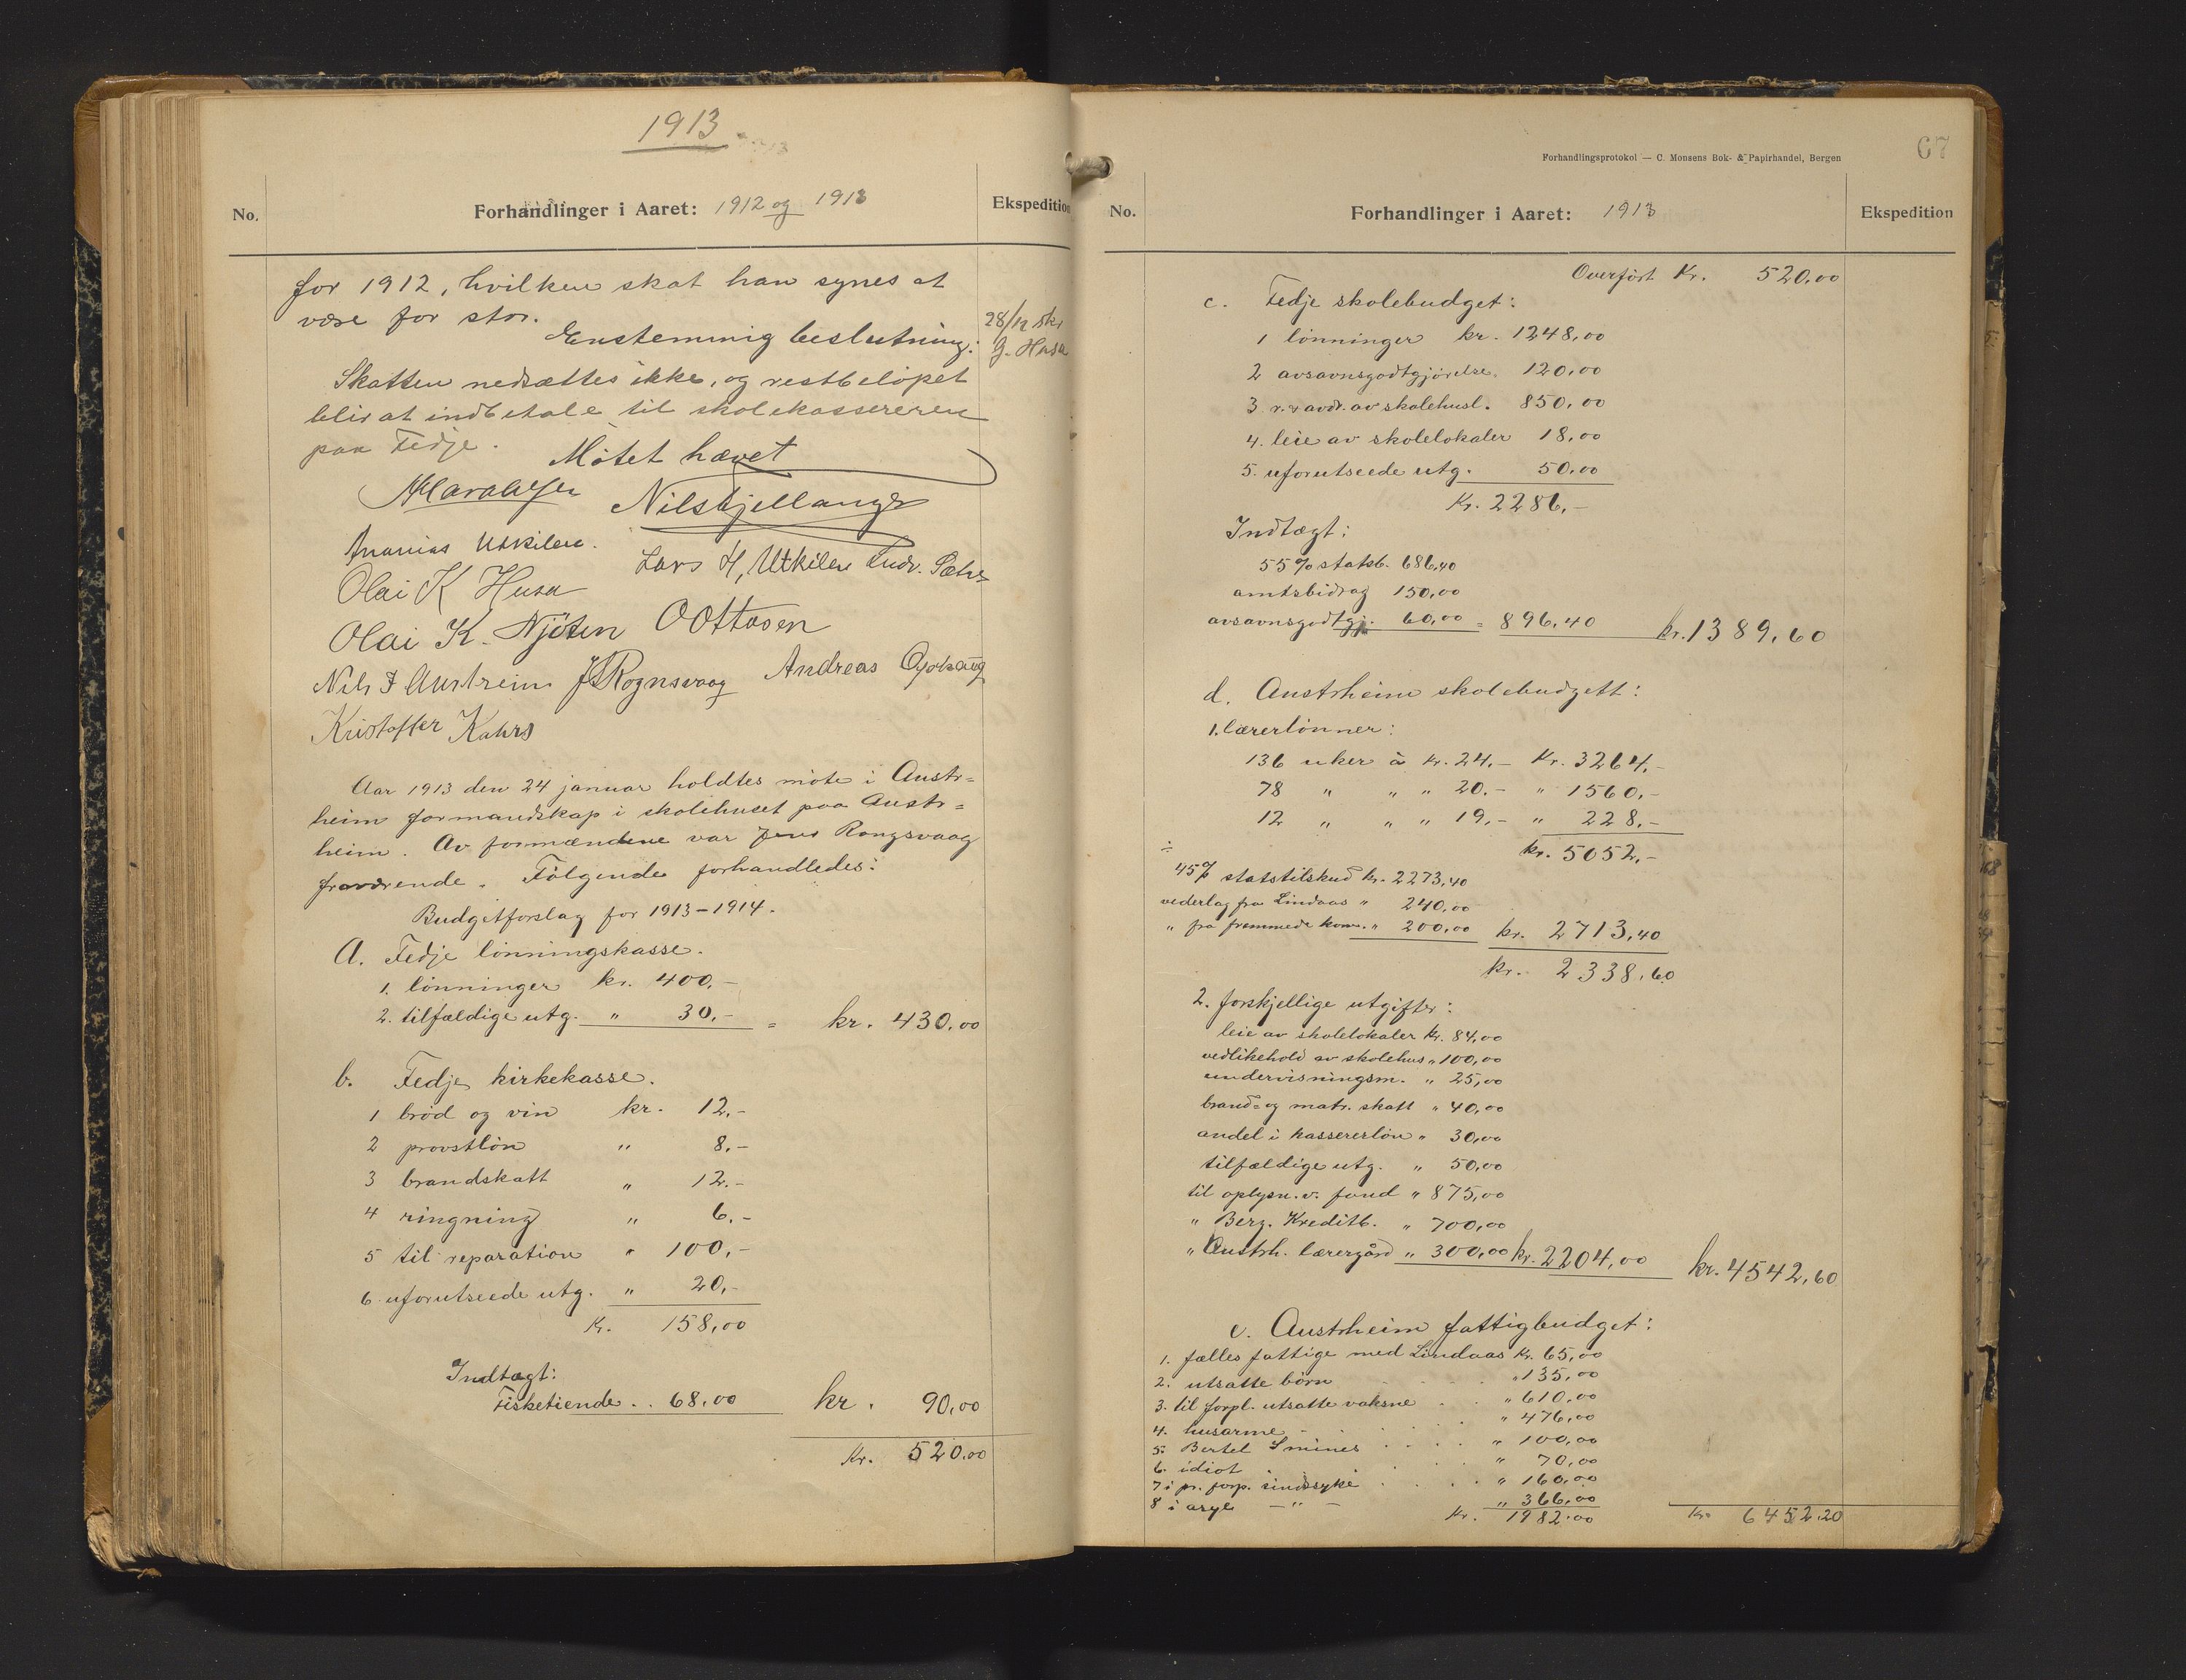 1913
No.
Forhandlinger i Aaret: 1912 og 1913
Ekspedition
for 1912, hvilken skat han synes at
være for stor.
Enstemmig beslutning:
28/12 skr
G. Husa
Skatten nedsættes ikke, og restbeløpet
blir at indbetale til skolekassereren
paa Fedje.
Møtet hævet
Nils Kjellanger
Ananias Utkilen.
Lars H, Utkilen Ludv. Sæhe
Olai K Husa
Olai K. Njøten O Ottosen
Nils I Austreim J Rognsvaag Andreas
Kristoffer Kahrs
Aar 1913 den 24 januar holdtes møte i Austr-
heim formandskap i skolehuset paa Austr-
heim. Av formændene var Jens Rongsvaag
fraværende. Følgende forhandledes:
Budgetforslag for 1913-1914.
A. Fedje lønningskasse.
1. lønninger kr. 400,-
2. tilfældige utg. " 30,- = kr. 430,00
b. Fedje kirkekasse.
1 brød og vin kr. 12,-
2 provstløn " 8,-
3 brandskatt " 12.-
4 ringning " 6,-
5 til reparation " 100,-
6 uforutseede utg. " 20,-
Kr. 158,00
Indtægt:
Fisketiende . . 68,00 kr. 90,00
Kr. 520,00
67
Forhandlingsprotokol — C. Monsens Bok- & Papirhandel, Bergen
No.
Forhandlinger i Aaret: 1913
Ekspedition
Overført Kr. 520,00
c. Fedje skolebudget:
1 lønninger kr. 1248,00
2 avsavnsgodtgjørelse. 120,00
3 r. & avdr. av skolehusl. 850,00
4. leie av skolelokaler 18,00
5. uforutseede utg. 50,00
Kr. 2286,-
Indtægt:
55% statsb. 686,40
amtsbidrag 150,00
avsavnsgodtgj. 60,00 = 896,40 kr. 1389,60
d. Austrheim skolebudgett:
1. lærerlønner:
136 uker à kr. 24,- Kr. 3264,-
78 " " " 20.- " 1560,-
12 " " " 19,- " 228,-
kr. 5052,-
÷
45% statstilskud kr. 2273,40
vederlag fra Lindaas " 240,00
" fra fremmede kom. " 200,00 kr. 2713,40
kr. 2338,60
2. forskjellige utgifter:
leie av skolelokaler kr. 84,00
vedlikehold av skolehus " 100,00
undervisningsm. " 25,00
brand- og matr. skatt " 40,00
andel i kassererløn " 30,00
tilfældige utg. " 50,00
til oplysn. v. fond " 875,00
" Berg. Kreditb. " 700,00
" Austrh. lærergård " 300,00 kr. 2204,00 kr. 4542,60
e. Austrheim fattigbudget:
1. fælles fattige med Lindaas kr. 65,00
2. utsatte børn " 135,00
3. til forpl. utsatte voksne . . " 610,00
4. husarme . . . " 476,00
5. Bertel Smines . . . . " 100,00
6. idiot . . . " 70,00
7 i pr. forp. sindssyke . . . . " 160,00
8 i asyl - " - " 366,00
Kr. 1982,00 Kr. 6452,20